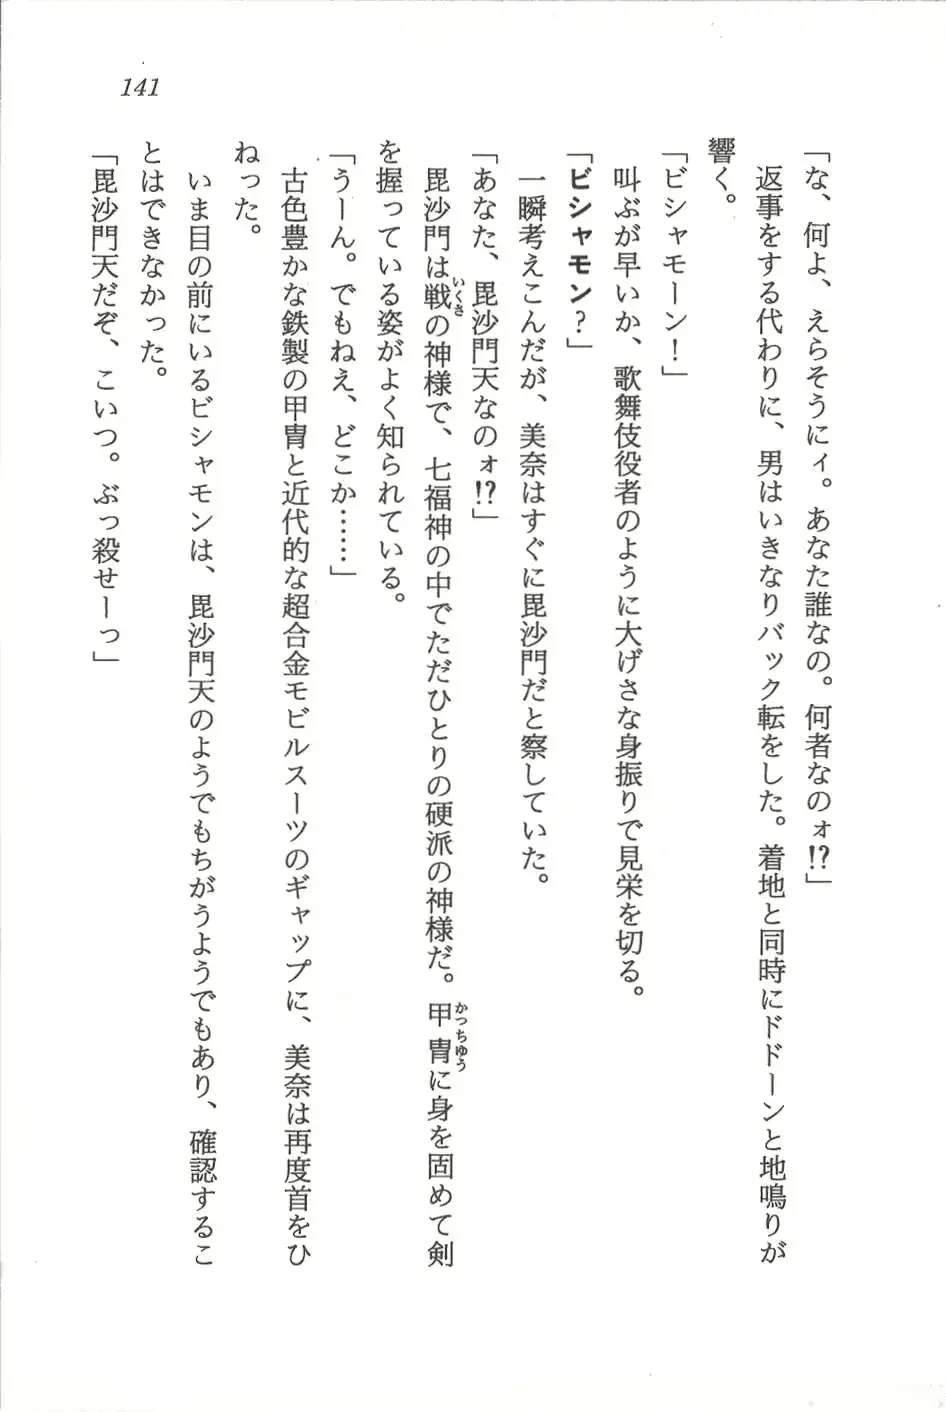 141
「な、何よ、えらそうにィ。あなた誰なの。何者なのォ!?」
　返事をする代わりに、男はいきなりバック転をした。着地と同時にドドーンと地鳴りが
響く。
「ビシャモーン!」
　叫ぶが早いか、歌舞伎役者のように大げさな身振りで見栄を切る。
「ビシャモン?」
　一瞬考えこんだが、美奈はすぐに毘沙門だと察していた。
「あなた、毘沙門天なのォ!?」
　毘沙門は戦いくさの神様で、七福神の中でただひとりの硬派の神様だ。甲冑かっちゅうに身を固めて剣
を握っている姿がよく知られている。
「うーん。でもねえ、どこか……」
　古色豊かな鉄製の甲冑と近代的な超合金モビルスーツのギャップに、美奈は再度首をひ
ねった。
　いま目の前にいるビシャモンは、毘沙門天のようでもちがうようでもあり、確認するこ
とはできなかった。
「毘沙門天だぞ、こいつ。ぶっ殺せーっ」